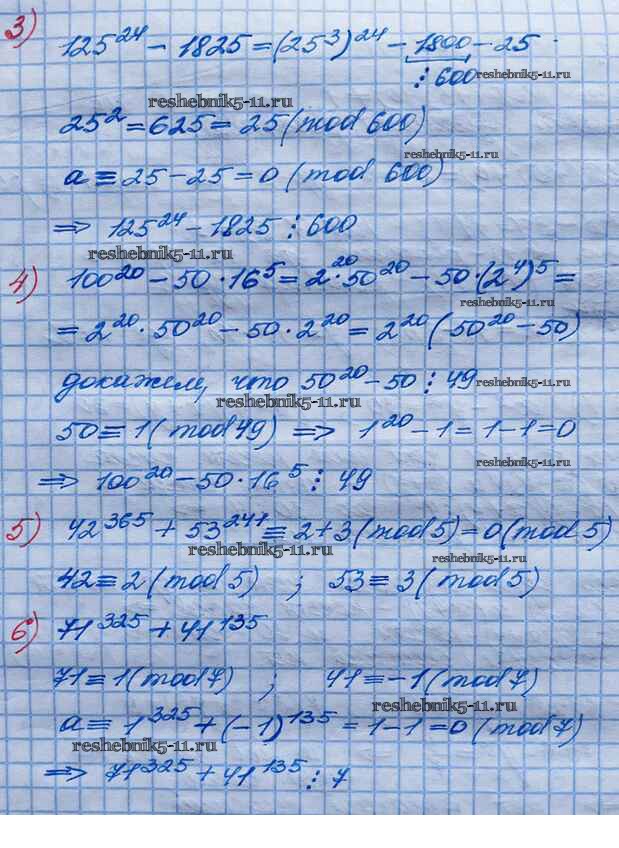 3)
125^24 - 1825 = (25^3)^24 - 1800 - 25
⋮ 600 reshebnik5-11.ru
reshebnik5-11.ru
25^2 = 625 = 25 (mod 600)
reshebnik5-11.ru
a ≡ 25 - 25 = 0 (mod 600)
⇒ 125^24 - 1825 ⋮ 600
reshebnik5-11.ru
4) 100^20 - 50 · 16^5 = 2^20 · 50^20 - 50 · (2^4)^5 =
reshebnik5-11.ru
= 2^20 · 50^20 - 50 · 2^20 = 2^20 (50^20 - 50)
докажем, что 50^20 - 50 ⋮ 49
reshebnik5-11.ru
reshebnik5-11.ru
50 ≡ 1 (mod 49) ⇒ 1^20 - 1 = 1 - 1 = 0
reshebnik5-11.ru
⇒ 100^20 - 50 · 16^5 ⋮ 49
5) 42^365 + 53^241 ≡ 2 + 3 (mod 5) = 0 (mod 5)
reshebnik5-11.ru
reshebnik5-11.ru
42 ≡ 2 (mod 5) ; 53 ≡ 3 (mod 5)
6) 71^325 + 41^135
71 ≡ 1 (mod 7) ; 41 ≡ -1 (mod 7)
reshebnik5-11.ru
a ≡ 1^325 + (-1)^135 = 1 - 1 = 0 (mod 7)
reshebnik5-11.ru
⇒ 71^325 + 41^135 ⋮ 7
reshebnik5-11.ru